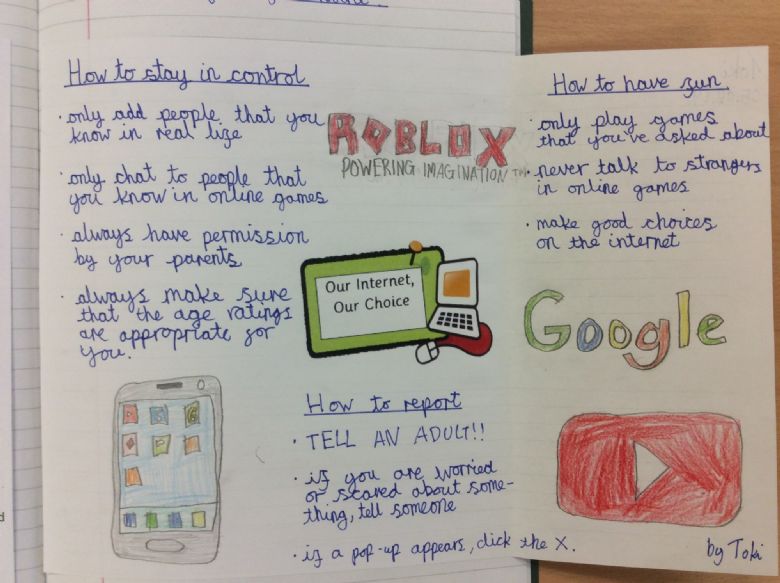 How to stay in control
• only add people that you
know in real life
• only chat to people that
you know in online games
• always have permission
by your parents
• always make sure
that the age ratings
are appropriate for
you.
ROBLOX
POWERING IMAGINATION™
Our Internet,
Our Choice
How to report
• TELL AN ADULT!!
• if you are worried
or scared about some-
thing, tell someone
• if a pop-up appears, click the X.
How to have fun
• only play games
that you've asked about
• never talk to strangers
in online games
• make good choices
on the internet
Google
by Toki